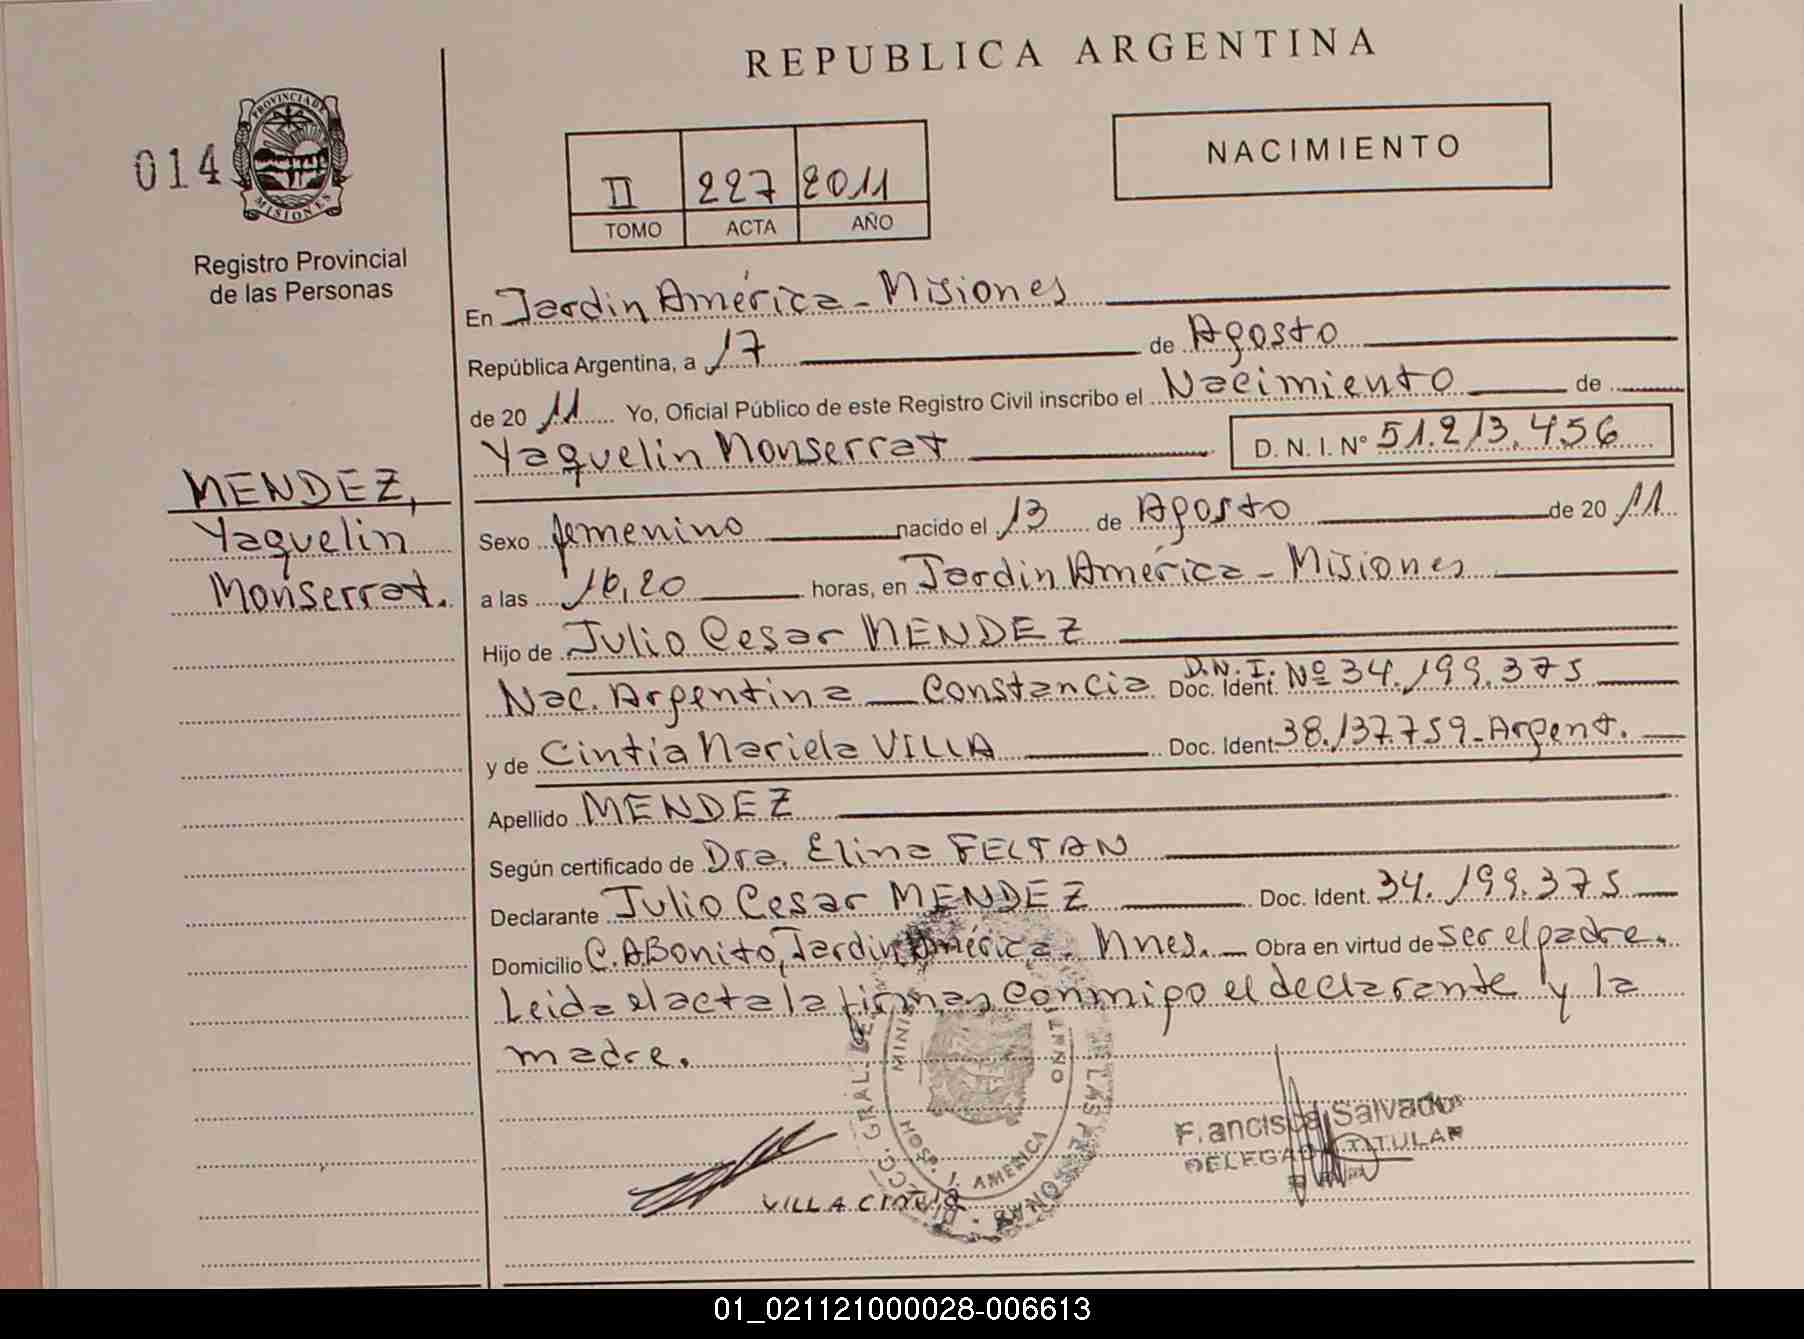 REPUBLICA ARGENTINA
014
PROVINCIA DE
MISIONES
Registro Provincial
de las Personas
II 227 2011
TOMO ACTA AÑO
NACIMIENTO
En Jardin América - Misiones
República Argentina, a 17 de Agosto
de 20 11 Yo, Oficial Público de este Registro Civil inscribo el Nacimiento de
Yaquelin Monserrat D.N.I. Nº 51.213.456
MENDEZ,
Yaquelin
Monserrat.
Sexo femenino nacido el 13 de Agosto de 20 11
a las 16,20 horas, en Jardin América - Misiones
Hijo de Julio Cesar MENDEZ
Nac. Argentina - Constancia D.N.I. Doc. Ident. Nº 34.199.375
y de Cintia Mariela VILLA Doc. Ident. 38.137.759 - Argent.
Apellido MENDEZ
Según certificado de Dra. Elina FELTAN
Declarante Julio Cesar MENDEZ Doc. Ident. 34.199.375
Domicilio C.A Bonito, Jardin América - Mnes. - Obra en virtud de ser el padre.
Leida el acta la firman conmigo el declarante y la
madre.
HOSP. J. AMERICA
VILLA CINTIA
Francisco Salvador
DELEGADO TITULAR
01_021121000028-006613